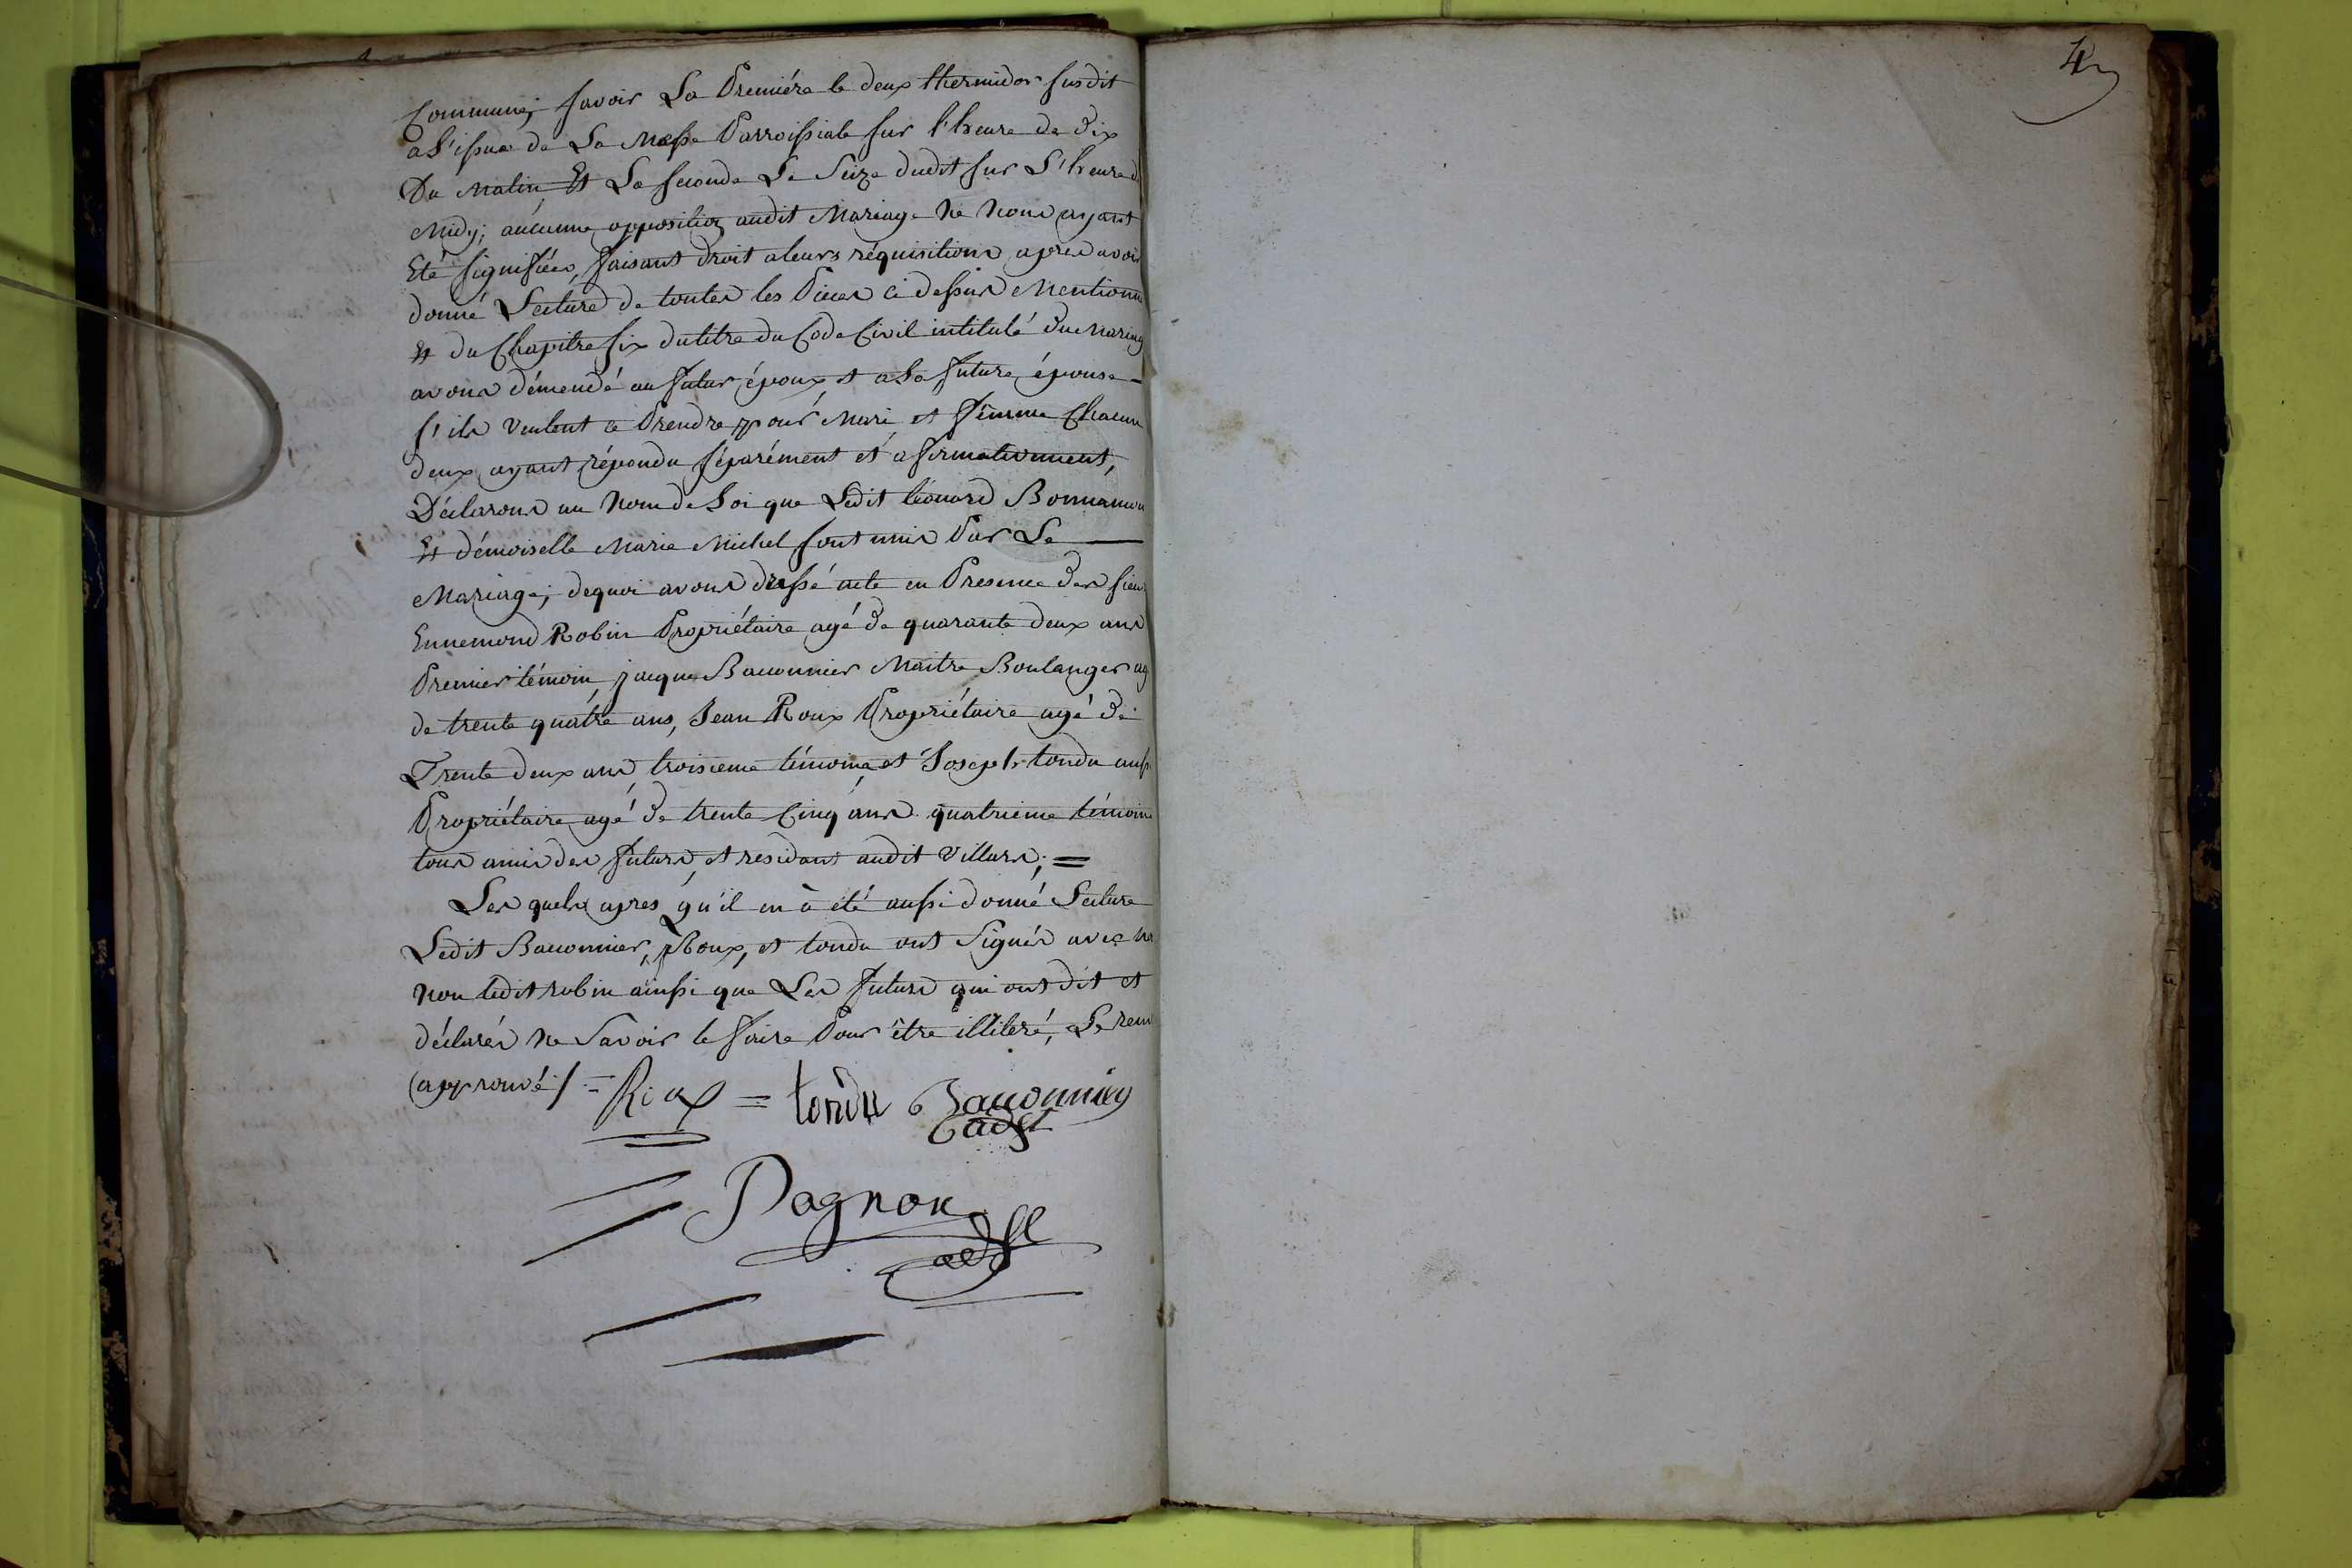 4
Commune; savoir La Premiére le deux thermidor susdit
a L'issue de La Messe Parroissiale sur l'heure de dix
Du Matin, Et La seconde Le Seize dudit sur L'heure d
Midy; aucunne opposition audit Mariage ne nous ayant
Eté signifiée, faisant droit a leurs réquisitions apres avoir
donné Lecture de toutes les Pieces ci dessus Mentionné
Et du Chapitre six du titre du Code Civil intitulé du Mariag
avons démendé au futur époux et a La future épouse -
s'ils veulent ce Prendre pour Mari et femme Chacun
deux ayant répondu séparément et afirmativement,
Déclarons au nom de Loi que Ledit léonard Bonnamou
Et démoiselle Marie Michel sont unis Par Le
Mariage; dequoi avons dressé acte en Presence des sieu
Ennemond Robin Propriétaire agé de quarante deux ans
Premier témoin, jacque Bauonnier Maitre Boulanger ag
de trente quatre ans, Jean Roux Propriétaire agé de
Trente deux ans troisieme témoins, et Joseph tondu auss
Propriétaire agé de trente Cinq ans quatrieme témoins
tous amis des futurs, et residant audit Villars; =
Les quels apres qu'il en à été aussi donné Lecture
Ledit Bauonnier, Roux, et tondu ont Signés avec no
non ledit robin ainssi que Les futurs qui ont dit et
déclarés ne Savoir le faire Pour être illiteré, Le renv
(approuvé / = Riox = tondu Bauonnier
Cadet
Pagnon
adj